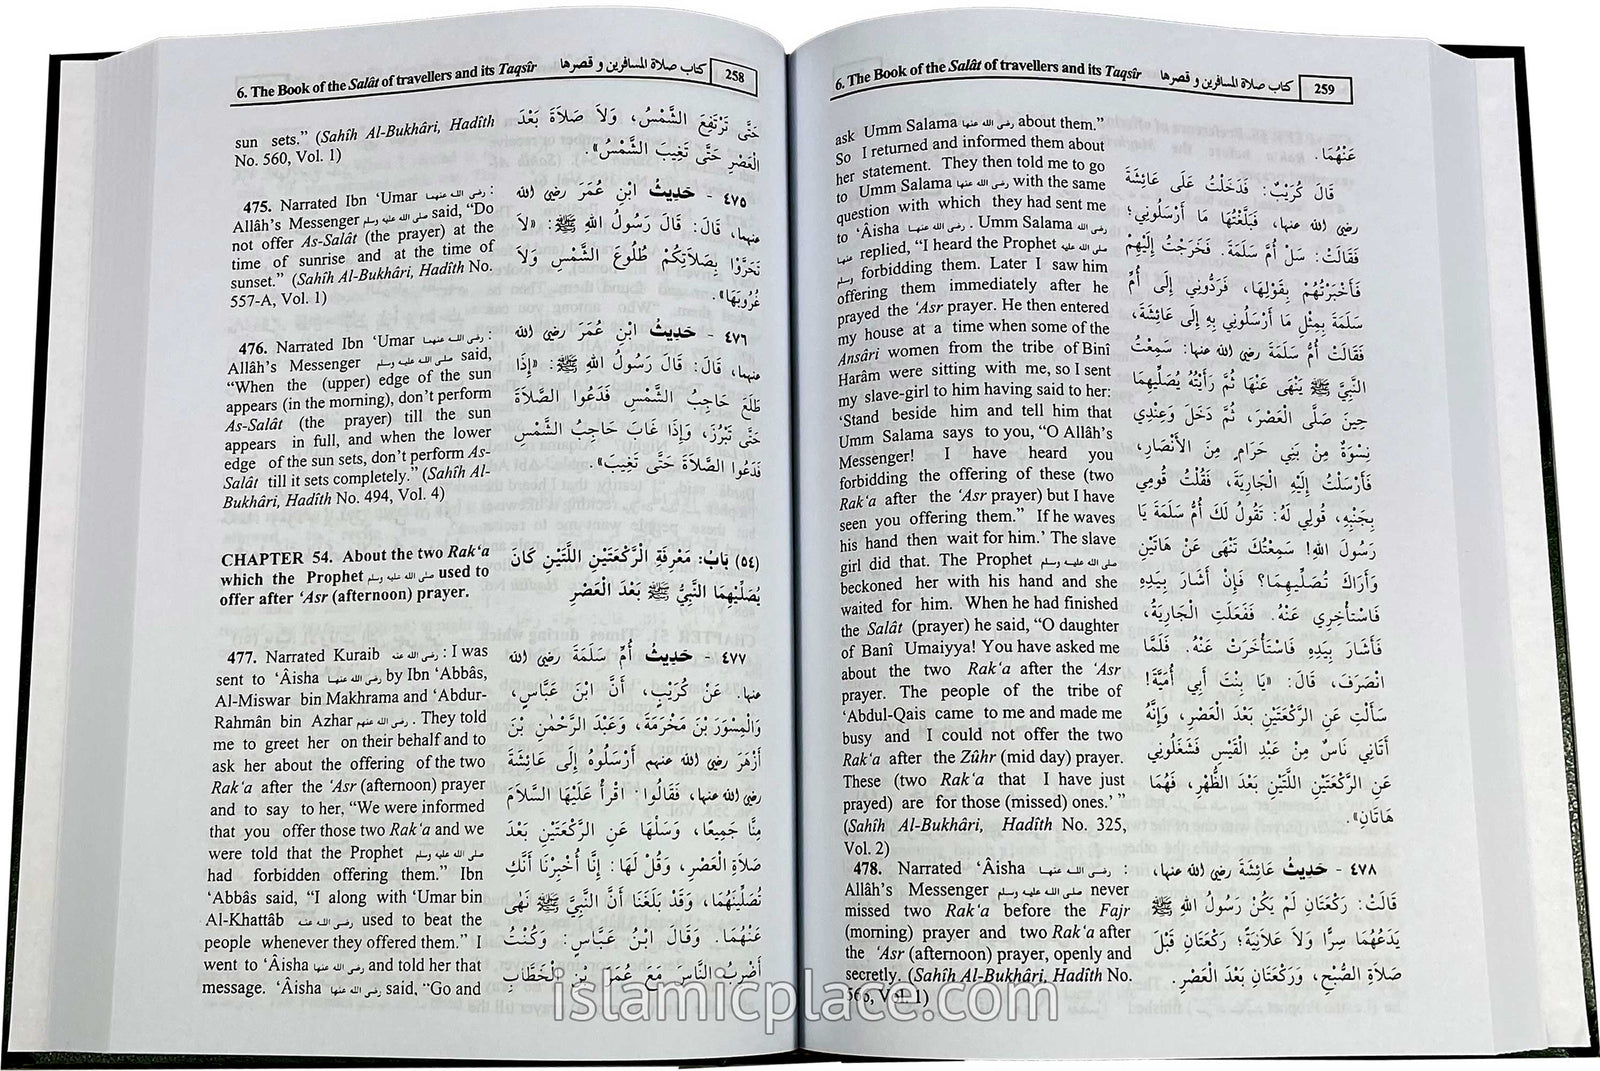 6. The Book of the Salât of travellers and its Taqsîr كتاب صلاة المسافرين و قصرها 258
sun sets.” (Sahîh Al-Bukhâri, Hadîth
No. 560, Vol. 1)
475. Narrated Ibn ‘Umar رضى الله عنهما :
Allâh’s Messenger صلى الله عليه وسلم said, “Do
not offer As-Salât (the prayer) at the
time of sunrise and at the time of
sunset.” (Sahîh Al-Bukhâri, Hadîth No.
557-A, Vol. 1)
476. Narrated Ibn ‘Umar رضى الله عنهما :
Allâh’s Messenger صلى الله عليه وسلم said,
“When the (upper) edge of the sun
appears (in the morning), don’t perform
As-Salât (the prayer) till the sun
appears in full, and when the lower
edge of the sun sets, don’t perform As-
Salât till it sets completely.” (Sahîh Al-
Bukhâri, Hadîth No. 494, Vol. 4)
CHAPTER 54. About the two Rak‘a
which the Prophet صلى الله عليه وسلم used to
offer after ‘Asr (afternoon) prayer.
477. Narrated Kuraib رضى الله عنه : I was
sent to ‘Âisha رضى الله عنها by Ibn ‘Abbâs,
Al-Miswar bin Makhrama and ‘Abdur-
Rahmân bin Azhar رضى الله عنهم . They told
me to greet her on their behalf and to
ask her about the offering of the two
Rak‘a after the ‘Asr (afternoon) prayer
and to say to her, “We were informed
that you offer those two Rak‘a and we
were told that the Prophet صلى الله عليه وسلم
had forbidden offering them.” Ibn
‘Abbâs said, “I along with ‘Umar bin
Al-Khattâb رضى الله عنه used to beat the
people whenever they offered them.” I
went to ‘Âisha رضى الله عنها and told her that
message. ‘Âisha رضى الله عنها said, “Go and
حَتَّى تَرْتَفِعَ الشَّمْسُ، وَلاَ صَلاَةَ بَعْدَ
الْعَصْرِ حَتَّى تَغِيبَ الشَّمْسُ».
٤٧٥ - حَدِيثُ ابْنِ عُمَرَ رضى الله
عنهما، قَالَ: قَالَ رَسُولُ اللهِ ﷺ: «لاَ
تَحَرَّوْا بِصَلاَتِكُمْ طُلُوعَ الشَّمْسِ وَلاَ
غُرُوبَهَا».
٤٧٦ - حَدِيثُ ابْنِ عُمَرَ رضى الله
عنهما، قَالَ: قَالَ رَسُولُ اللهِ ﷺ: «إِذَا
طَلَعَ حَاجِبُ الشَّمْسِ فَدَعُوا الصَّلاَةَ
حَتَّى تَبْرُزَ، وَإِذَا غَابَ حَاجِبُ الشَّمْسِ
فَدَعُوا الصَّلاَةَ حَتَّى تَغِيبَ».
(٥٤) بَابُ: مَعْرِفَةِ الرَّكْعَتَيْنِ اللَّتَيْنِ كَانَ
يُصَلِّيْهِمَا النَّبِيُّ ﷺ بَعْدَ الْعَصْرِ
٤٧٧ - حَدِيثُ أُمِّ سَلَمَةَ رضى الله
عنها. عَنْ كُرَيْبٍ، أَنَّ ابْنَ عَبَّاسٍ،
وَالْمِسْوَرَ بْنَ مَخْرَمَةَ، وَعَبْدَ الرَّحْمٰنِ بْنَ
أَزْهَرَ رضى الله عنهم أَرْسَلُوهُ إِلَى عَائِشَةَ
رضى الله عنها، فَقَالُوا: اقْرَأْ عَلَيْهَا السَّلاَمَ
مِنَّا جَمِيعًا، وَسَلْهَا عَنِ الرَّكْعَتَيْنِ بَعْدَ
صَلاَةِ الْعَصْرِ، وَقُلْ لَهَا: إِنَّا أُخْبِرْنَا أَنَّكِ
تُصَلِّينَهُمَا، وَقَدْ بَلَغَنَا أَنَّ النَّبِيَّ ﷺ نَهَى
عَنْهُمَا. وَقَالَ ابْنُ عَبَّاسٍ: وَكُنْتُ
أَضْرِبُ النَّاسَ مَعَ عُمَرَ بْنِ الْخَطَّابِ
6. The Book of the Salât of travellers and its Taqsîr كتاب صلاة المسافرين و قصرها 259
ask Umm Salama رضى الله عنها about them.”
So I returned and informed them about
her statement. They then told me to go
to Umm Salama رضى الله عنها with the same
question with which they had sent me
to ‘Âisha رضى الله عنها . Umm Salama رضى الله
عنها replied, “I heard the Prophet صلى الله عليه
وسلم forbidding them. Later I saw him
offering them immediately after he
prayed the ‘Asr prayer. He then entered
my house at a time when some of the
Ansâri women from the tribe of Binî
Harâm were sitting with me, so I sent
my slave-girl to him having said to her:
‘Stand beside him and tell him that
Umm Salama says to you, “O Allâh’s
Messenger! I have heard you
forbidding the offering of these (two
Rak‘a after the ‘Asr prayer) but I have
seen you offering them.” If he waves
his hand then wait for him.’ The slave
girl did that. The Prophet صلى الله عليه وسلم
beckoned her with his hand and she
waited for him. When he had finished
the Salât (prayer) he said, “O daughter
of Banî Umaiyya! You have asked me
about the two Rak‘a after the ‘Asr
prayer. The people of the tribe of
‘Abdul-Qais came to me and made me
busy and I could not offer the two
Rak‘a after the Zûhr (mid day) prayer.
These (two Rak‘a that I have just
prayed) are for those (missed) ones.’ ”
(Sahîh Al-Bukhâri, Hadîth No. 325,
Vol. 2)
478. Narrated ‘Âisha رضى الله عنها :
Allâh’s Messenger صلى الله عليه وسلم never
missed two Rak‘a before the Fajr
(morning) prayer and two Rak‘a after
the ‘Asr (afternoon) prayer, openly and
secretly. (Sahîh Al-Bukhâri, Hadîth No.
566, Vol. 1)
عَنْهُمَا.
قَالَ كُرَيْبٌ: فَدَخَلْتُ عَلَى عَائِشَةَ
رضى الله عنها، فَبَلَّغْتُهَا مَا أَرْسَلُونِي؛
فَقَالَتْ: سَلْ أُمَّ سَلَمَةَ. فَخَرَجْتُ إِلَيْهِمْ
فَأَخْبَرْتُهُمْ بِقَوْلِهَا، فَرَدُّونِي إِلَى أُمِّ
سَلَمَةَ بِمِثْلِ مَا أَرْسَلُونِي بِهِ إِلَى عَائِشَةَ،
فَقَالَتْ أُمُّ سَلَمَةَ رضى الله عنها: سَمِعْتُ
النَّبِيَّ ﷺ يَنْهَى عَنْهَا ثُمَّ رَأَيْتُهُ يُصَلِّيهِمَا
حِينَ صَلَّى الْعَصْرَ، ثُمَّ دَخَلَ وَعِنْدِي
نِسْوَةٌ مِنْ بَنِي حَرَامٍ مِنَ الأَنْصَارِ،
فَأَرْسَلْتُ إِلَيْهِ الْجَارِيَةَ، فَقُلْتُ قُومِي
بِجَنْبِهِ، قُولِي لَهُ: تَقُولُ لَكَ أُمُّ سَلَمَةَ يَا
رَسُولَ اللهِ! سَمِعْتُكَ تَنْهَى عَنْ هَاتَيْنِ
وَأَرَاكَ تُصَلِّيهِمَا؟ فَإِنْ أَشَارَ بِيَدِهِ
فَاسْتَأْخِرِي عَنْهُ. فَفَعَلَتِ الْجَارِيَةُ،
فَأَشَارَ بِيَدِهِ فَاسْتَأْخَرَتْ عَنْهُ. فَلَمَّا
انْصَرَفَ، قَالَ: «يَا بِنْتَ أَبِي أُمَيَّةَ!
سَأَلْتِ عَنِ الرَّكْعَتَيْنِ بَعْدَ الْعَصْرِ، وَإِنَّهُ
أَتَانِي نَاسٌ مِنْ عَبْدِ الْقَيْسِ فَشَغَلُونِي
عَنِ الرَّكْعَتَيْنِ اللَّتَيْنِ بَعْدَ الظُّهْرِ، فَهُمَا
هَاتَانِ».
٤٧٨ - حَدِيثُ عَائِشَةَ رضى الله عنها،
قَالَتْ: رَكْعَتَانِ لَمْ يَكُنْ رَسُولُ اللهِ ﷺ
يَدَعُهُمَا سِرًّا وَلاَ عَلاَنِيَةً؛ رَكْعَتَانِ قَبْلَ
صَلاَةِ الصُّبْحِ، وَرَكْعَتَانِ بَعْدَ الْعَصْرِ.
islamicplace.com